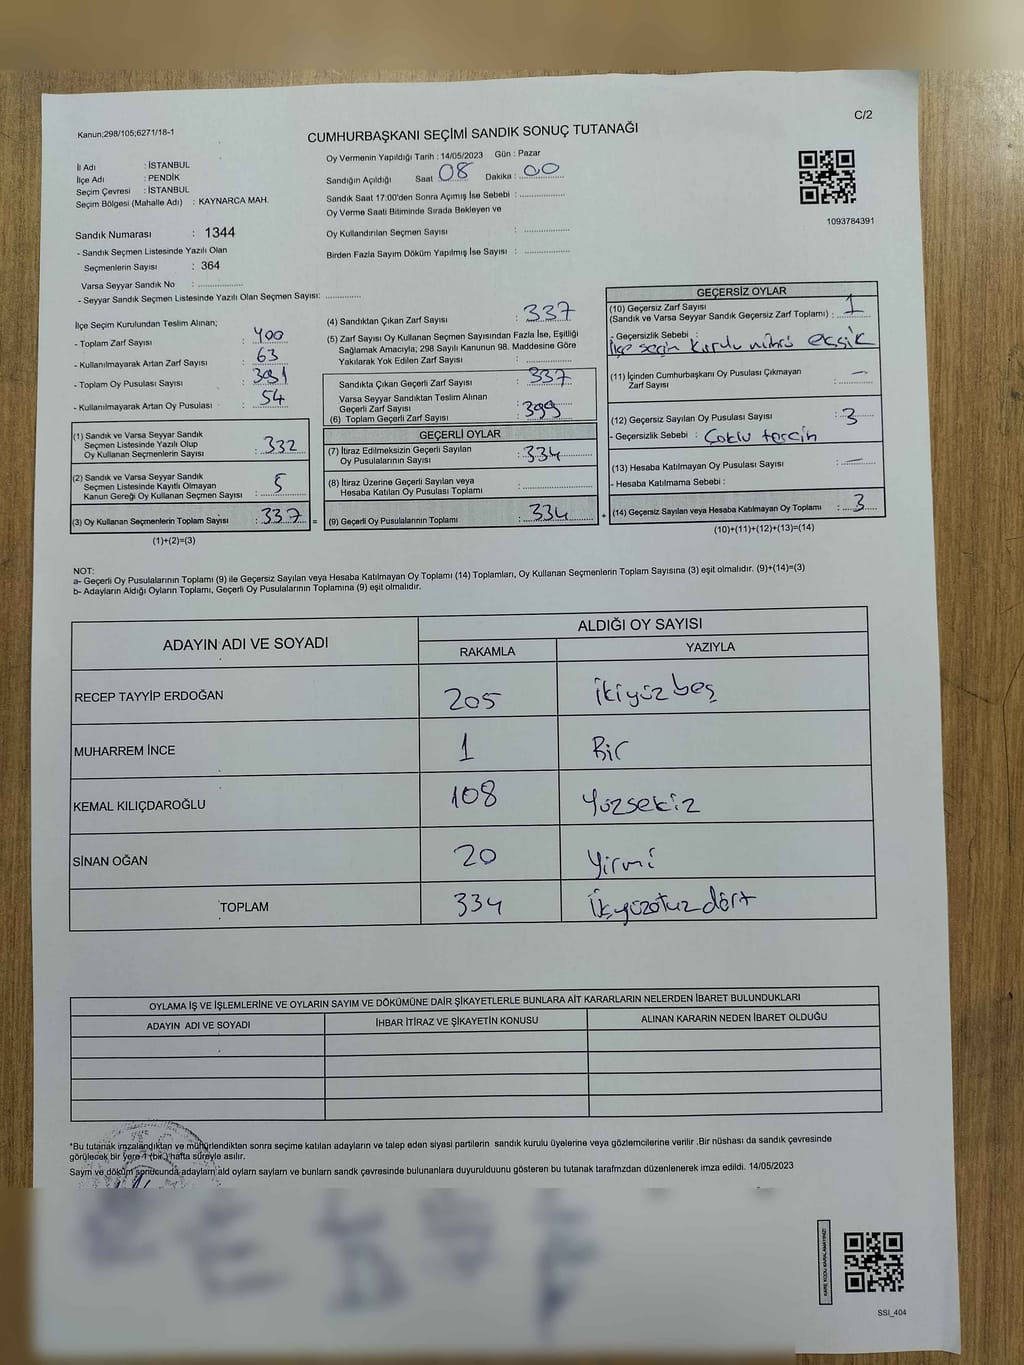 Kanun;298/105;6271/18-1
C/2
CUMHURBAŞKANI SEÇİMİ SANDIK SONUÇ TUTANAĞI
İl Adı : İSTANBUL
İlçe Adı : PENDİK
Seçim Çevresi : İSTANBUL
Seçim Bölgesi (Mahalle Adı) : KAYNARCA MAH.
Sandık Numarası : 1344
- Sandık Seçmen Listesinde Yazılı Olan
Seçmenlerin Sayısı : 364
Varsa Seyyar Sandık No : ..................
- Seyyar Sandık Seçmen Listesinde Yazılı Olan Seçmen Sayısı: ..............
Oy Vermenin Yapıldığı Tarih : 14/05/2023 Gün : Pazar
Sandığın Açıldığı Saat 08 Dakika : 00
Sandık Saat 17:00'den Sonra Açımış İse Sebebi : ..................
Oy Verme Saati Bitiminde Sırada Bekleyen ve
Oy Kullandırılan Seçmen Sayısı : ..................
Birden Fazla Sayım Döküm Yapılmış İse Sayısı : ..................
1093784391
İlçe Seçim Kurulundan Teslim Alınan;
- Toplam Zarf Sayısı : 400
- Kullanılmayarak Artan Zarf Sayısı : 63
- Toplam Oy Pusulası Sayısı : 391
- Kullanılmayarak Artan Oy Pusulası : 54
(1) Sandık ve Varsa Seyyar Sandık
Seçmen Listesinde Yazılı Olup
Oy Kullanan Seçmenlerin Sayısı : 332
(2) Sandık ve Varsa Seyyar Sandık
Seçmen Listesinde Kayıtlı Olmayan
Kanun Gereği Oy Kullanan Seçmen Sayısı : 5
(3) Oy Kullanan Seçmenlerin Toplam Sayısı : 337 =
(1)+(2)=(3)
(4) Sandıktan Çıkan Zarf Sayısı : 337
(5) Zarf Sayısı Oy Kullanan Seçmen Sayısından Fazla İse, Eşitliği
Sağlamak Amacıyla; 298 Sayılı Kanunun 98. Maddesine Göre
Yakılarak Yok Edilen Zarf Sayısı : ..................
Sandıkta Çıkan Geçerli Zarf Sayısı : 337
Varsa Seyyar Sandıktan Teslim Alınan
Geçerli Zarf Sayısı :
(6) Toplam Geçerli Zarf Sayısı : 399
GEÇERLİ OYLAR
(7) İtiraz Edilmeksizin Geçerli Sayılan
Oy Pusulalarının Sayısı : 334
(8) İtiraz Üzerine Geçerli Sayılan veya
Hesaba Katılan Oy Pusulası Toplamı : ..................
(9) Geçerli Oy Pusulalarının Toplamı : 334 +
GEÇERSİZ OYLAR
(10) Geçersiz Zarf Sayısı
(Sandık ve Varsa Seyyar Sandık Geçersiz Zarf Toplamı) : 1
- Geçersizlik Sebebi :
İlçe seçim kurulu mührü eksik
(11) İçinden Cumhurbaşkanı Oy Pusulası Çıkmayan
Zarf Sayısı : —
(12) Geçersiz Sayılan Oy Pusulası Sayısı : 3
- Geçersizlik Sebebi : Çoklu tercih
(13) Hesaba Katılmayan Oy Pusulası Sayısı : —
- Hesaba Katılmama Sebebi :
(14) Geçersiz Sayılan veya Hesaba Katılmayan Oy Toplamı : 3
(10)+(11)+(12)+(13)=(14)
NOT:
a- Geçerli Oy Pusulalarının Toplamı (9) ile Geçersiz Sayılan veya Hesaba Katılmayan Oy Toplamı (14) Toplamları, Oy Kullanan Seçmenlerin Toplam Sayısına (3) eşit olmalıdır. (9)+(14)=(3)
b- Adayların Aldığı Oyların Toplamı, Geçerli Oy Pusulalarının Toplamına (9) eşit olmalıdır.
ADAYIN ADI VE SOYADI ALDIĞI OY SAYISI
RAKAMLA YAZIYLA
RECEP TAYYİP ERDOĞAN 205 İkiyüz beş
MUHARREM İNCE 1 Bir
KEMAL KILIÇDAROĞLU 108 Yüzsekiz
SİNAN OĞAN 20 Yirmi
TOPLAM 334 İkiyüzotuz dört
OYLAMA İŞ VE İŞLEMLERİNE VE OYLARIN SAYIM VE DÖKÜMÜNE DAİR ŞİKAYETLERLE BUNLARA AİT KARARLARIN NELERDEN İBARET BULUNDUKLARI
ADAYIN ADI VE SOYADI İHBAR İTİRAZ VE ŞİKAYETİN KONUSU ALINAN KARARIN NEDEN İBARET OLDUĞU
*Bu tutanak imzalandıktan ve mühürlendikten sonra seçime katılan adayların ve talep eden siyasi partilerin sandık kurulu üyelerine veya gözlemcilerine verilir .Bir nüshası da sandık çevresinde
görülecek bir yere 1 (bir ) hafta süreyle asılır.
Sayım ve döküm sonucunda adayların ald oylam saylam ve bunlarn sandk çevresinde bulunanlara duyurulduunu gösteren bu tutanak tarafmzdan düzenlenerek imza edildi. 14/05/2023
KARE KODU KARALAMAYINIZ!
SSI_404